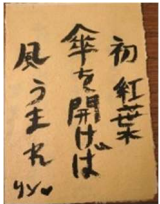 初紅葉
傘を開けば
風うまれ
リン♥